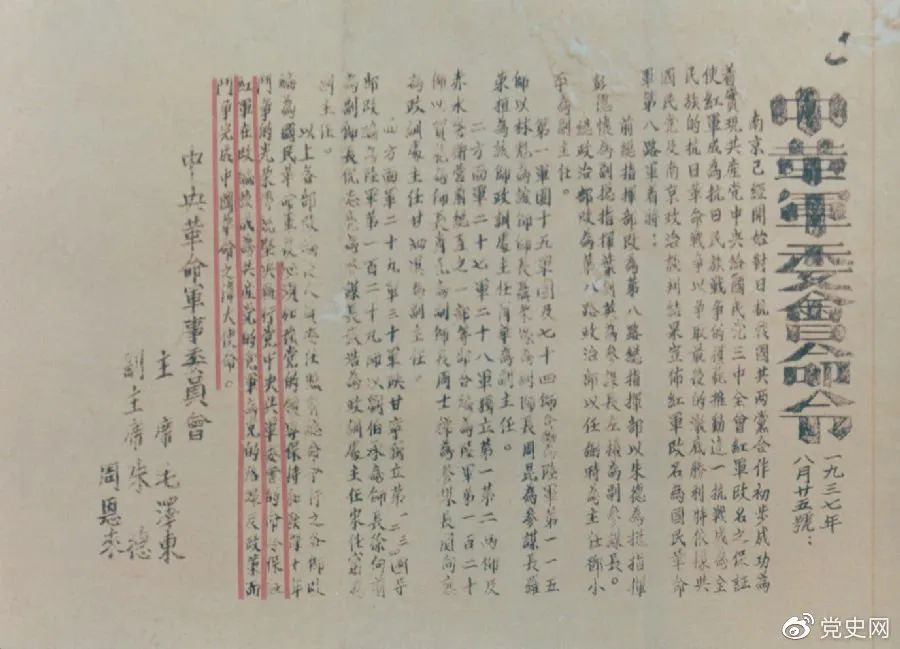 中革軍委會命令
一九三七年
八月廿五號：
南京已經開始對日抗戰國共兩黨合作初步成功為
着實現共産党中央給國民党三中全會紅軍改名之保証
使紅軍成為抗日民族戰争的模範推動這一抗戰成為全
民族的抗日革命戰争以争取最後的澈底勝利特依據共
國民党及南京政治談判結果宣佈紅軍改名為國民革命
軍第八路軍着將：
前總指揮部改為第八路總指揮部以朱德為總指揮
彭德懷為副總指揮葉劍英為參謀長左權為副參謀長。
總政治部改為第八路政治部以任弼時為主任鄧小
平為副主任。
第一軍團十五軍團及七十四師合編為陸軍第一一五
師以林彪為該師師長聶榮臻為副師長周昆為參謀長羅
榮桓為該師政訓處主任蕭華為副主任。
二方面軍二十七軍二十八軍獨立第一第二兩師及
赤水警衛營前總直之一部等部合編為陸軍第一百二十
師以賀龍為師長蕭克為副師長周士第為參謀長關向應
為政訓處主任甘泗淇為副主任。
四方面軍二十九軍三十軍陝甘寧獨立第一二三四等
師改編為陸軍第一百二十九師以劉伯承為師長徐向前
為副師長倪志亮為參謀長張浩為政訓處主任宋任窮為
副主任。
以上各部改編後人員委任照前總命令行之各部改
編為國民革命軍後必須加強党的領導保持和發揮十年
鬥爭的光榮傳統堅決執行党中央與軍委會的命令保証
紅軍在改編後成為共産党的党軍為党的路線及政策而
鬥爭完成中國革命之偉大使命。
中央革命軍事委員會
主席毛澤東
副主席朱德
周恩来
党史网